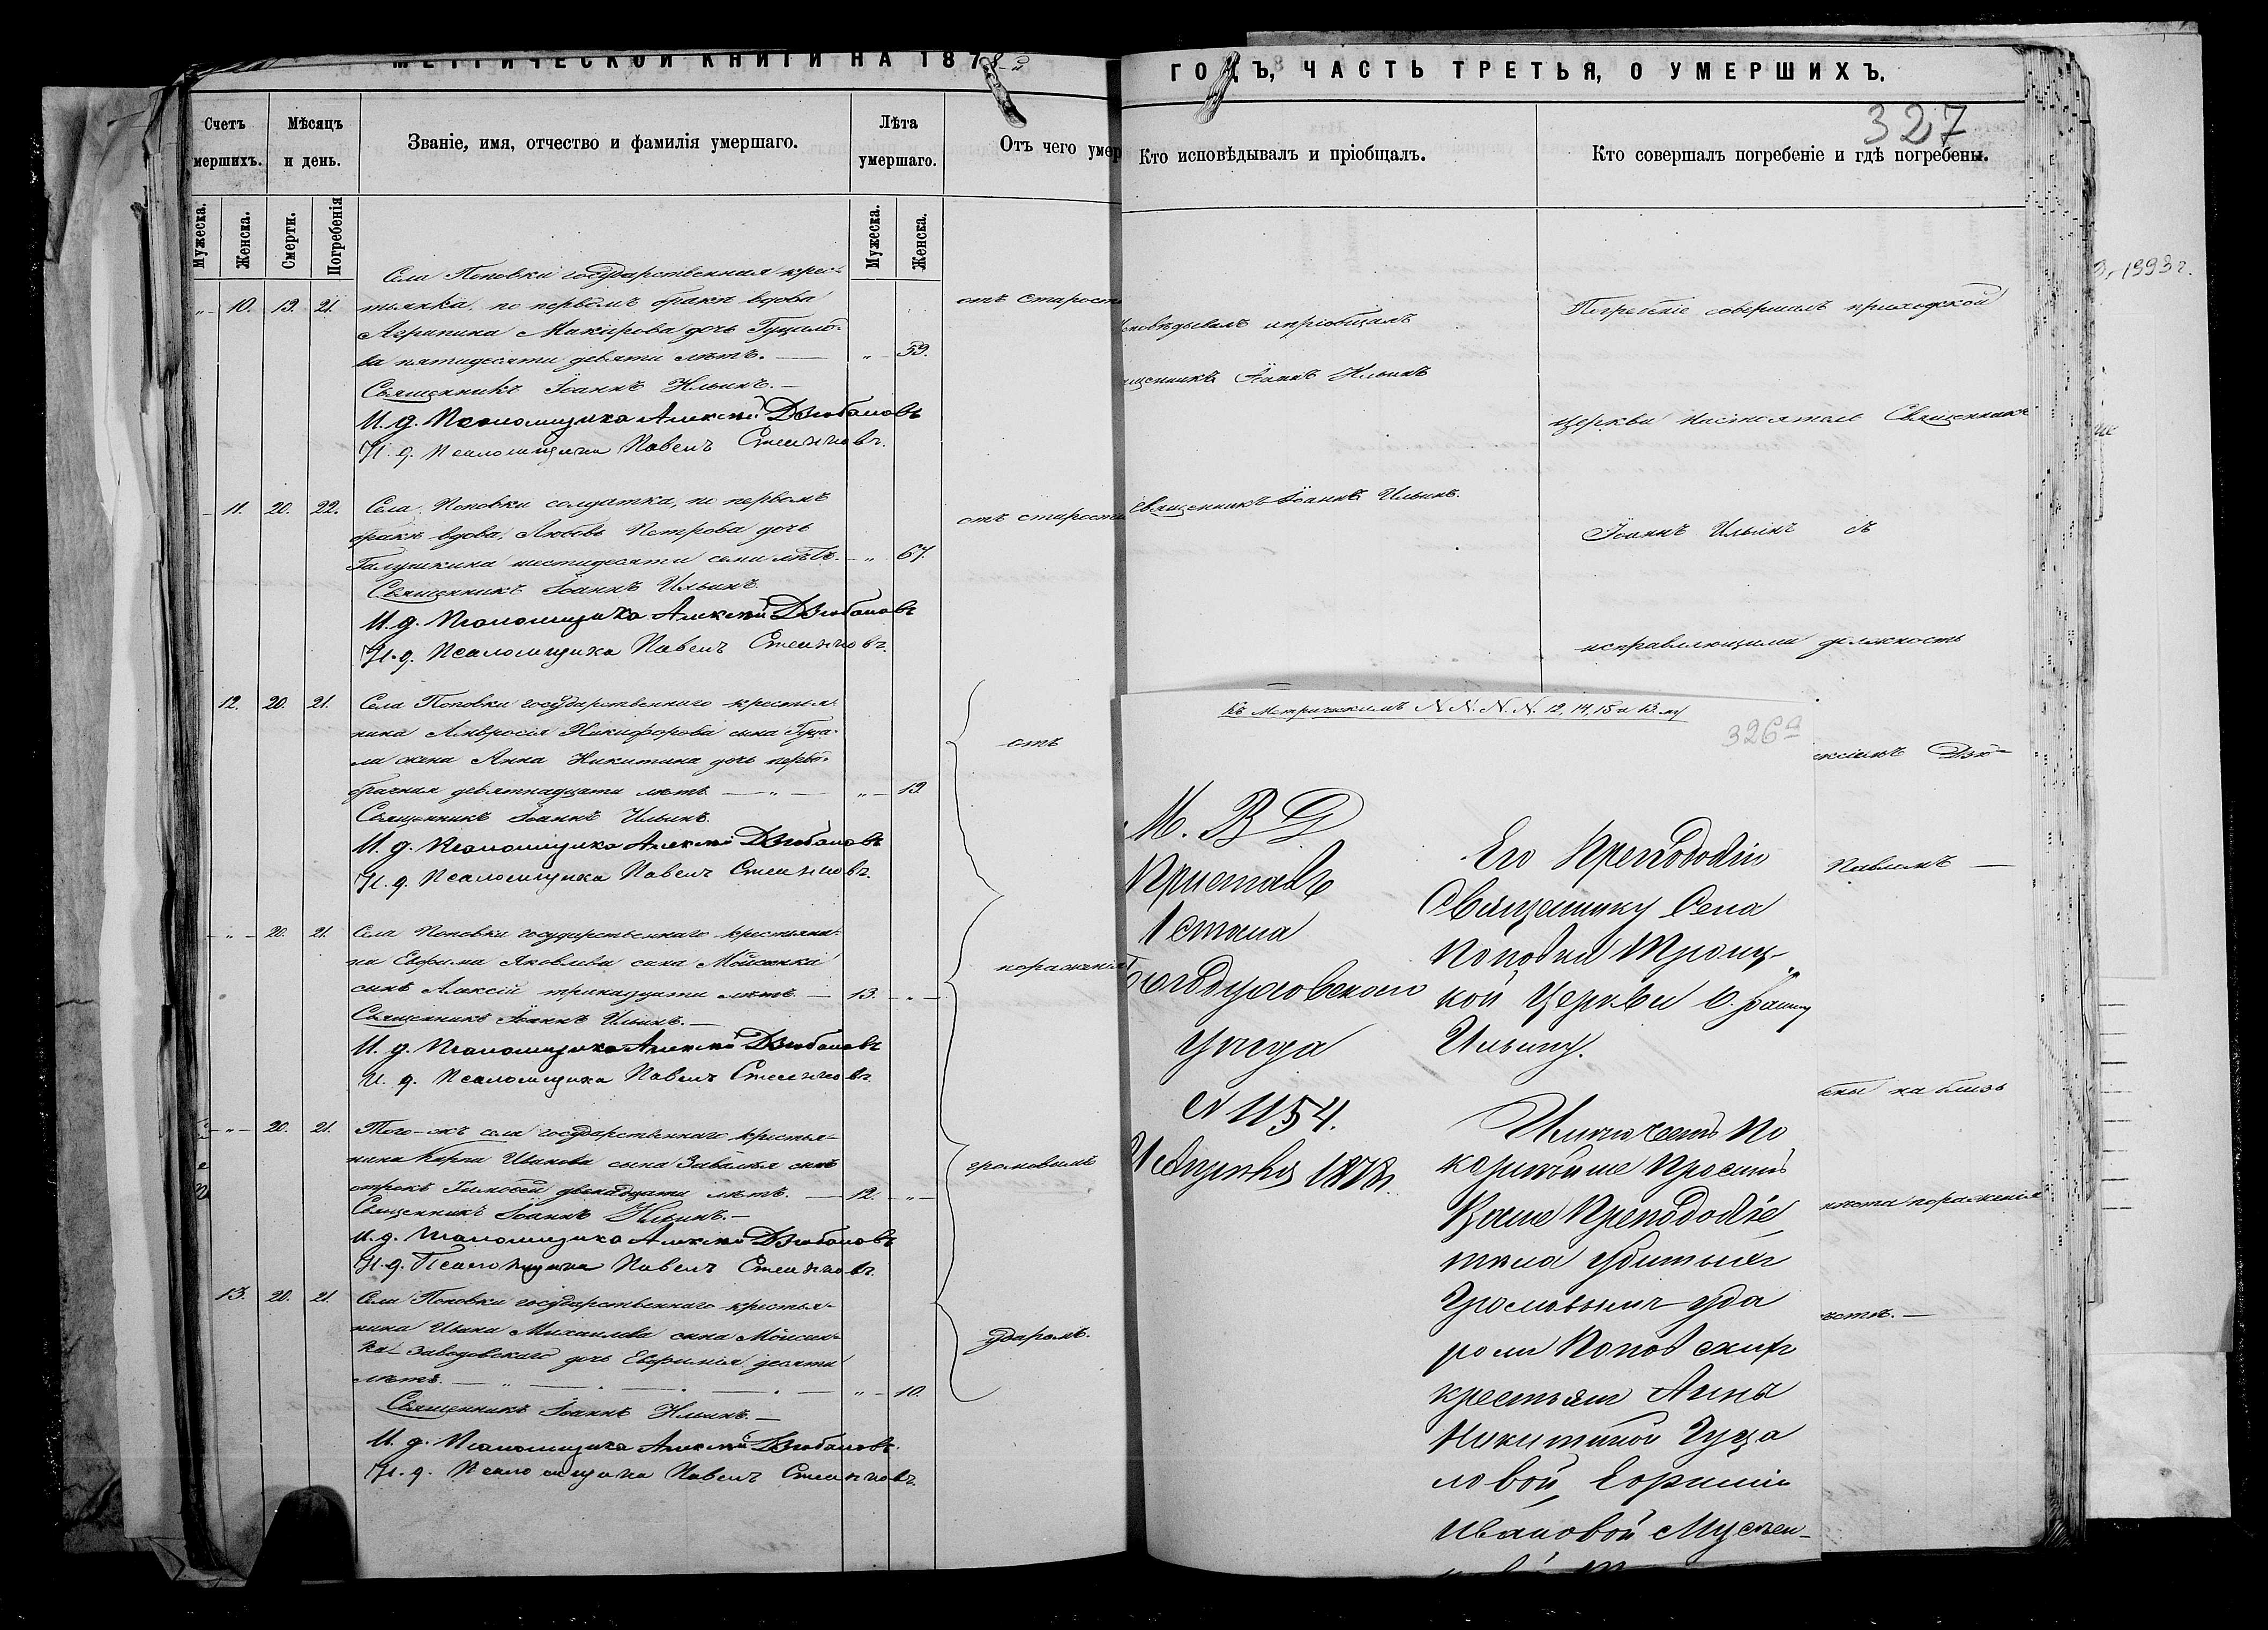 МЕТРИЧЕСКОЙ КНИГИ НА 1878
Счетъ
мершихъ.
Мѣсяцъ
и день.
Званіе, имя, отчество и фамилія умершаго.
Лѣта
умершаго.
Отъ чего умер
Мужеска.
Женска.
Смерти.
Погребенія
Мужеска.
Женска.
Села Поповки государственная крес-
10. 19. 21. тьянка, по первомъ бракѣ вдова
Агрипина Макарова дочь Гуцало-
ва пятидесяти девяти лѣтъ. — „ 59.
отъ старости
Священникъ Іоаннъ Ильинъ. —
И. д. Псаломщика Алексѣй Дзюбановъ
И. д. Псаломщика Павелъ
11. 20. 22. Села Поповки солдатка, по первомъ
бракѣ вдова, Любовь Петрова дочь
Галушкина шестидесяти семи лѣтъ. — „ 67.
отъ старости
Священникъ Іоаннъ Ильинъ.
И. д. Псаломщика Алексѣй Дзюбановъ
И. д. Псаломщика Павелъ
12. 20. 21. Села Поповки государственнаго крестья-
нина Амвросія Никифорова сына Гуца-
ла жена Анна Никитина дочь перво-
брачная девятнадцати лѣтъ — „ — „ 19
отъ
Священникъ Іоаннъ Ильинъ.
И. д. Псаломщика Алексѣй Дзюбановъ
И. д. Псаломщика Павелъ
„ 20. 21. Села Поповки государственнаго крестьяни-
на Евфима Яковлева сына Мойсенка
сынъ Алексій тринадцати лѣтъ. — 13. „
пораженія
Священникъ Іоаннъ Ильинъ. —
И. д. Псаломщика Алексѣй Дзюбановъ
И. д. Псаломщика Павелъ
„ 20. 21. Того-жъ села государственнаго крестья-
нина Карпа Иванова сына сынъ
отрокъ Тимоѳей двенадцати лѣтъ. — 12. „
громовымъ
Священникъ Іоаннъ Ильинъ. —
И. д. Псаломщика Алексѣй Дзюбановъ
И. д. Псаломщика Павелъ
13. 20. 21. Села Поповки государственнаго крестья-
нина Ивана Михаилова сына Мойсен-
ка Заводовскаго дочь Евфимія десяти
лѣтъ. — „ 10.
ударомъ.
Священникъ Іоаннъ Ильинъ. —
И. д. Псаломщика Алексѣй Дзюбановъ
И. д. Псаломщика Павелъ
ГОДЪ, ЧАСТЬ ТРЕТЬЯ, О УМЕРШИХЪ.
327
Кто исповѣдывалъ и пріобщалъ.
Кто совершалъ погребеніе и гдѣ погребены.
исповѣдывалъ и пріобщалъ
щенникъ Іоаннъ Ильинъ
Священникъ Іоаннъ Ильинъ.
Погребеніе совершилъ приходской
церкви настоятель Священникъ
Іоаннъ Ильинъ съ
исправляющими должность
ексіемъ Дзю-
Павломъ —
ены на близь
мѣста пораженія
1993 г.
Къ Метрическимъ N.N.N.N. 12, 14, 15 и 13. му
326а
М. В Д
Приставъ
1 стана
Богодуховскаго
уѣзда
N 1154.
21 1878
Его Преподобію
Священнику Села
Поповки Троиц-
кой Церкви о. Іоанну
Ильину.
Имѣю честь по
корнѣйше просить
Ваше Преподобіе,
тела убитыхъ
громовымъ уда
ромъ Поповскихъ
крестьян Анны
Никитиной Гуца
ловой, Ефиміи
Ивановой